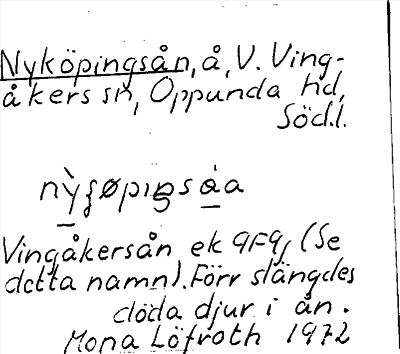 Nyköpingsån, å, V. Ving-
åkers sn, Oppunda hd,
Södl.
nỳʒøpiŋsȧa
Vingåkersån, ek 9F9j (Se
detta namn). Förr slängdes
döda djur i ån.
Mona Löfroth 1972